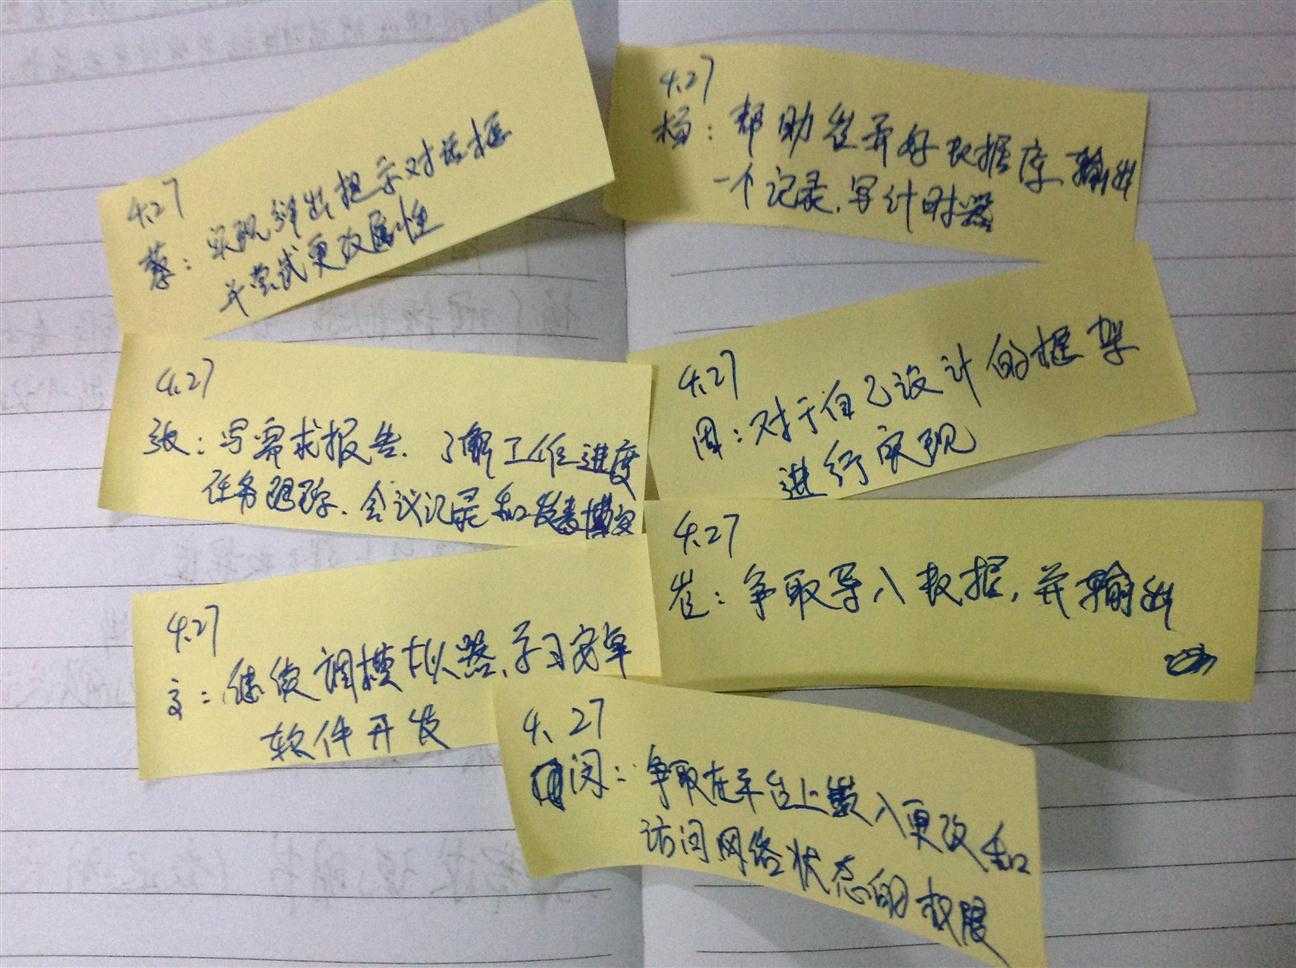 4.27
蔡：实现弹出提示对话框
并尝试更改属性
4.27
杨：帮助崔弄好数据库，输出
一个记录，写计时器
4.27
张：写需求报告、了解工作进度
任务跟踪、会议记录和发表博文
4.27
周：对于自己设计的框架
进行实现
4.27
文：继续调模拟器，学习安卓
软件开发
4.27
崔：争取导入数据，并输出
4.27
闵：争取在平台上嵌入更改和
访问网络状态的权限